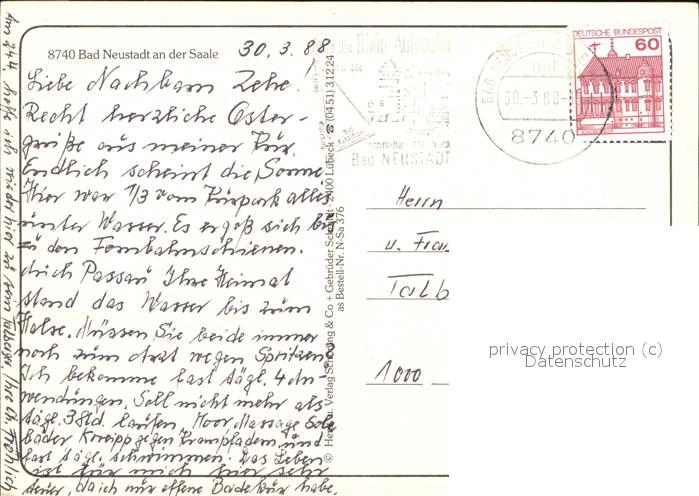 8740 Bad Neustadt an der Saale
30.3.88
Liebe Nachbarn Zehe!
Recht herzliche Oster-
grüße aus meiner Kur.
Endlich scheint die Sonne
Hier war 1/3 vom Kurpark alles
unter Wasser. Es ergoß sich bis
zu den Fernbahnschienen.
Auch Passau Ihre Heimat
stand das Wasser bis zum
Halse. Müssen Sie beide immer
noch zum Arzt wegen Spritzen.
Ich bekomme fast tägl. 4 An-
wendungen, Soll nicht mehr als
tägl. 3 Std. laufen, Moor Massage Sole
bäder Kneipp gegen Krampfadern und
fast tägl. schwimmen. Das Leben
ist für mich hier sehr
teuer, da ich nur offene Badekur habe.
Am 24.4. hoffe ich wieder hier zu sein
Ihre Ch. Fröhlich
© Herst. u. Verlag Schöning & Co + Gebrüder Schmidt · 2400 Lübeck · ☎ (0451) 31224
as Bestell-Nr. N-Sa 376
die Rhön-Autobahn
schneller
Bad NEUSTADT
BAD NEUSTADT
30.-3.88
8740
DEUTSCHE BUNDESPOST
60
Herrn
u. Frau
Talb
1000
privacy protection (c)
Datenschutz